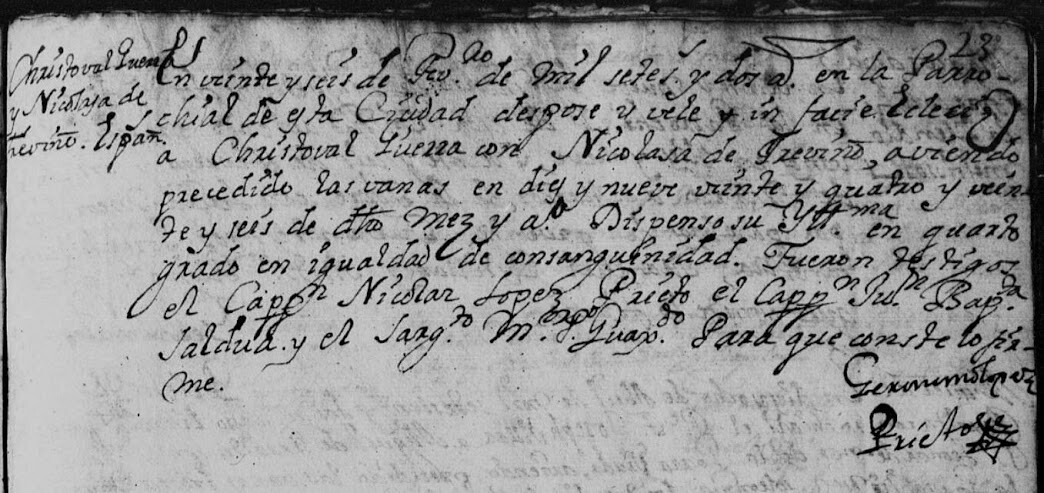 23
Christoval Guerra
y Nicolasa de
trevino. Españ.
En veinte y seis de de mil setes. y dos a. en la Parro-
chial de esta Ciudad despose y vele y in facie Eclecie
a Christoval Guerra con Nicolasa de Trevino, aviendo
precedido las vanas en diez y nueve veinte y quatro y vein-
te y seis de dho Mez y a.o Dispenso su Yllma. en quarto
grado en igualdad de consanguinidad. Fueron testigos
el Cappn Nicolas Lopez Prieto el Cappn Ju.n Bap.ta
Saldua. y el Sarg.to M. Guax.do Para que conste lo fir-
me.
Geronimo Lopez
Prieto